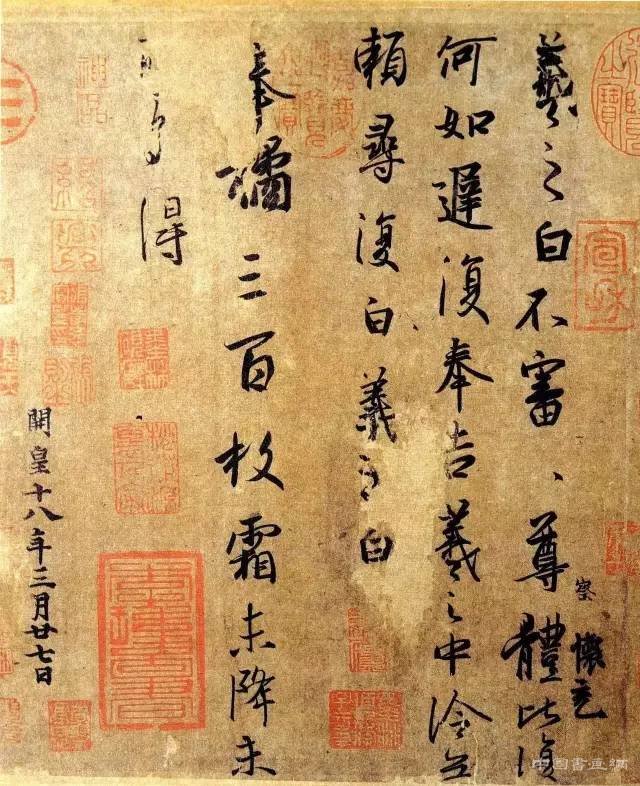 羲之白不審、尊體比復
察 懷充
何如遲復奉告羲之中冷無
賴尋復白羲之白
奉橘三百枚霜未降未
可多得
開皇十八年三月廿七日
宣和
神品
中国書画網